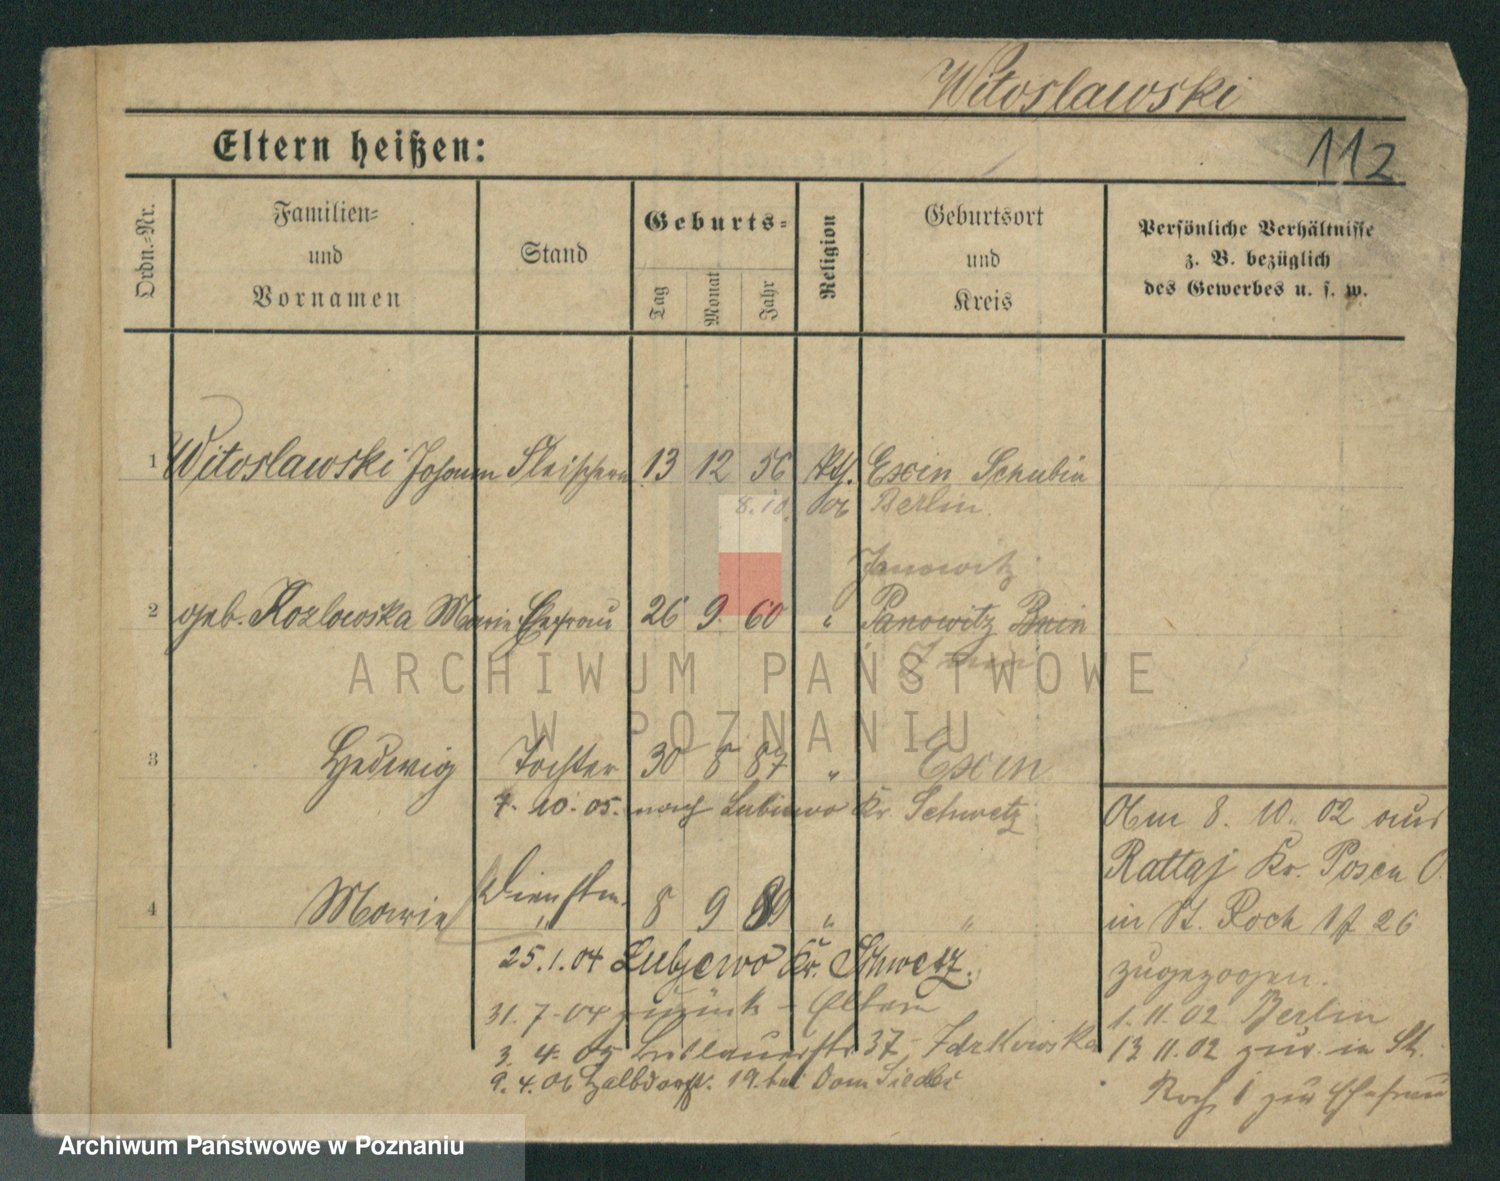 Witoslawski
112
Eltern heißen:
Ordn.-Nr.
Familien-
und
Vornamen
Stand
Geburts-
Tag
Monat
Jahr
Religion
Geburtsort
und
Kreis
Persönliche Verhältnisse
z. B. bezüglich
des Gewerbes u. s. w.
1 Witoslawski Johann 13 12 56 kth. Exin Schubin
8.10. Berlin.
Janowitz
2 geb. Kozlowska Marie Ehefrau 26 9. 60 " Panowitz Bnin
3 Hedwig Tochter 30 8 87 " Exin
7. 10. 05. nach Lubiewo Kr. Schwetz
4 Marie Dienstm. 8 9 89 " "
"
25.1.04 Lubjewo Kr. Schwetz.
31.7.04 zurück - Eltern
3. 4. 05 37
9.4.06 Halbdorfstr. 19. bei Dom Siedli
Am 8. 10. 02 aus
Rattaj Kr. Posen O.
in St. Roch 26
zugezogen.
1.11.02 Berlin
13 11.02 zur. in St.
Roch 1 zur Ehefrau
ARCHIWUM PAŃSTWOWE
W POZNANIU
Archiwum Państwowe w Poznaniu